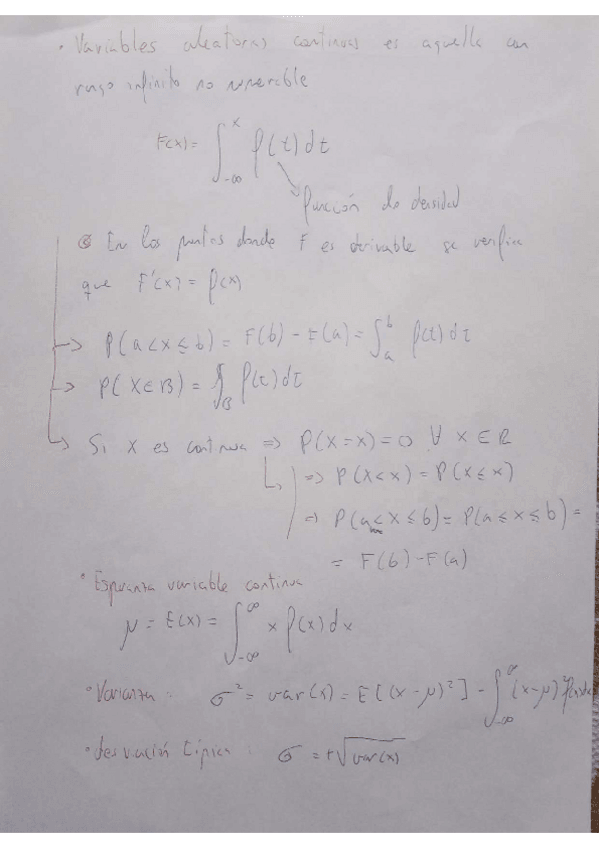 · Variables aleatorias continuas es aquella con
rango infinito no numerable
F(x) = ∫_{-∞}^{x} f(t) dt
función de densidad
En los puntos donde F es derivable se verifica
que F'(x) = f(x)
→ P(a < x ≤ b) = F(b) - F(a) = ∫_a^b f(t) dt
→ P(X ∈ B) = ∫_B f(t) dt
→ Si X es continua ⇒ P(X = x) = 0 ∀ x ∈ R
⇒ P(X < x) = P(X ≤ x)
⇒ P(a ≤ X ≤ b) = P(a ≤ x ≤ b) =
= F(b) - F(a)
· Esperanza variable continua
μ = E(x) = ∫_{-∞}^{∞} x f(x) dx
· Varianza : σ² = var(x) = E[(x - μ)²] - ∫_{-∞}^{∞} (x - μ)² f(x) dx
· desviación típica : σ = +√var(x)